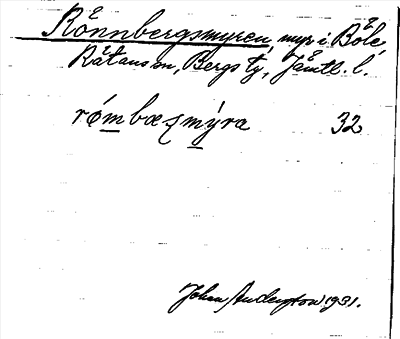 Rönnbergsmyren, myr i Böle,
Rätansbn, Bergs tg, Jämtl. l.
römbæʂmýra 32
Johan Anderson 1931.